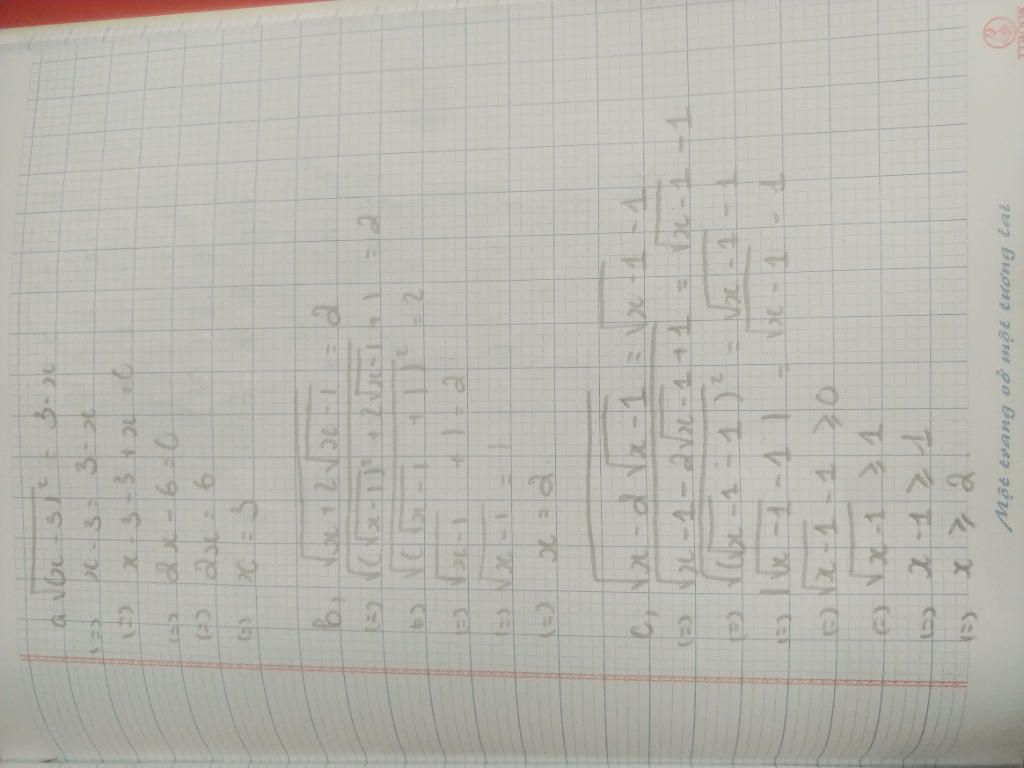 a √(x-3)² = 3-x
(=) x-3 = 3-x
(=) x-3-3+x = 0
(=) 2x-6=0
(=) 2x = 6
(=) x = 3
b, √x+2√x-1 = 2
(=) √(√x-1)² + 2√x-1 + 1 = 2
(=) √(√x-1 + 1)² = 2
(=) √x-1 + 1 = 2
(=) √x-1 = 1
(=) x = 2
c, √x-2√x-1 = √x-1 - 1
(=) √x-1-2√x-1+1 = √x-1 - 1
(=) √(√x-1 - 1)² = √x-1 - 1
(=) |√x-1 - 1| = √x-1 - 1
(=) √x-1 - 1 ≥ 0
(=) √x-1 ≥ 1
(=) x-1 ≥ 1
(=) x ≥ 2
Một trang vở một tương lai